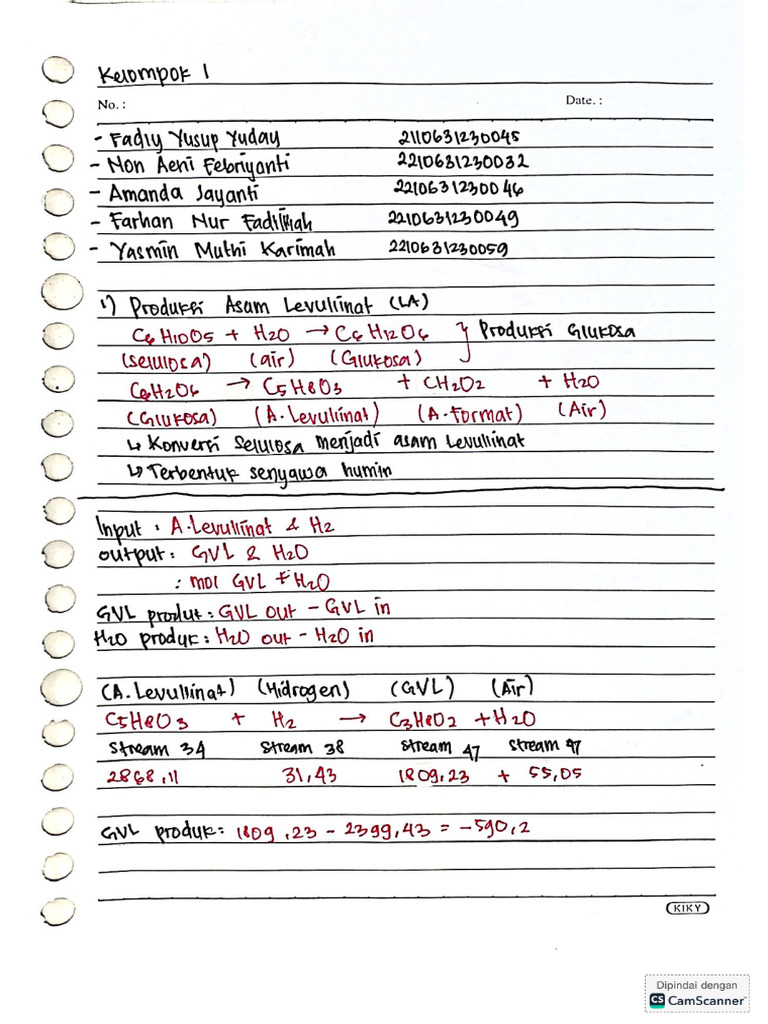 Kelompok 1
No. : Date. :
- Fadly Yusup Yuday 2110631230045
- Non Aeni Febriyanti 2210631230032
- Amanda Jayanti 2210631230046
- Farhan Nur Fadillhah 2210631230049
- Yasmin Muthi Karimah 2210631230059
1) Produksi Asam Levullinat (LA)
C6H10O5 + H2O → C6H12O6 } Produksi Glukosa
(Selulosa) (air) (Glukosa)
C6H2O6 → C5H8O3 + CH2O2 + H2O
(Glukosa) (A. Levullinat) (A. Format) (Air)
↳ Konversi Selulosa menjadi asam Levullinat
↳ Terbentuk senyawa humin
Input : A. Levullinat & H2
output : GVL & H2O
: mol GVL + H2O
GVL produt : GVL out - GVL in
H2O produk : H2O out - H2O in
(A. Levullinat) (Hidrogen) (GVL) (Air)
C5H8O3 + H2 → C3H8O2 + H2O
Stream 34 Stream 38 Stream 47 Stream 47
2868,11 31,43 1809,23 + 55,05
GVL produk : 1809,23 - 2399,43 = -590,2
KIKY
Dipindai dengan
CS CamScanner